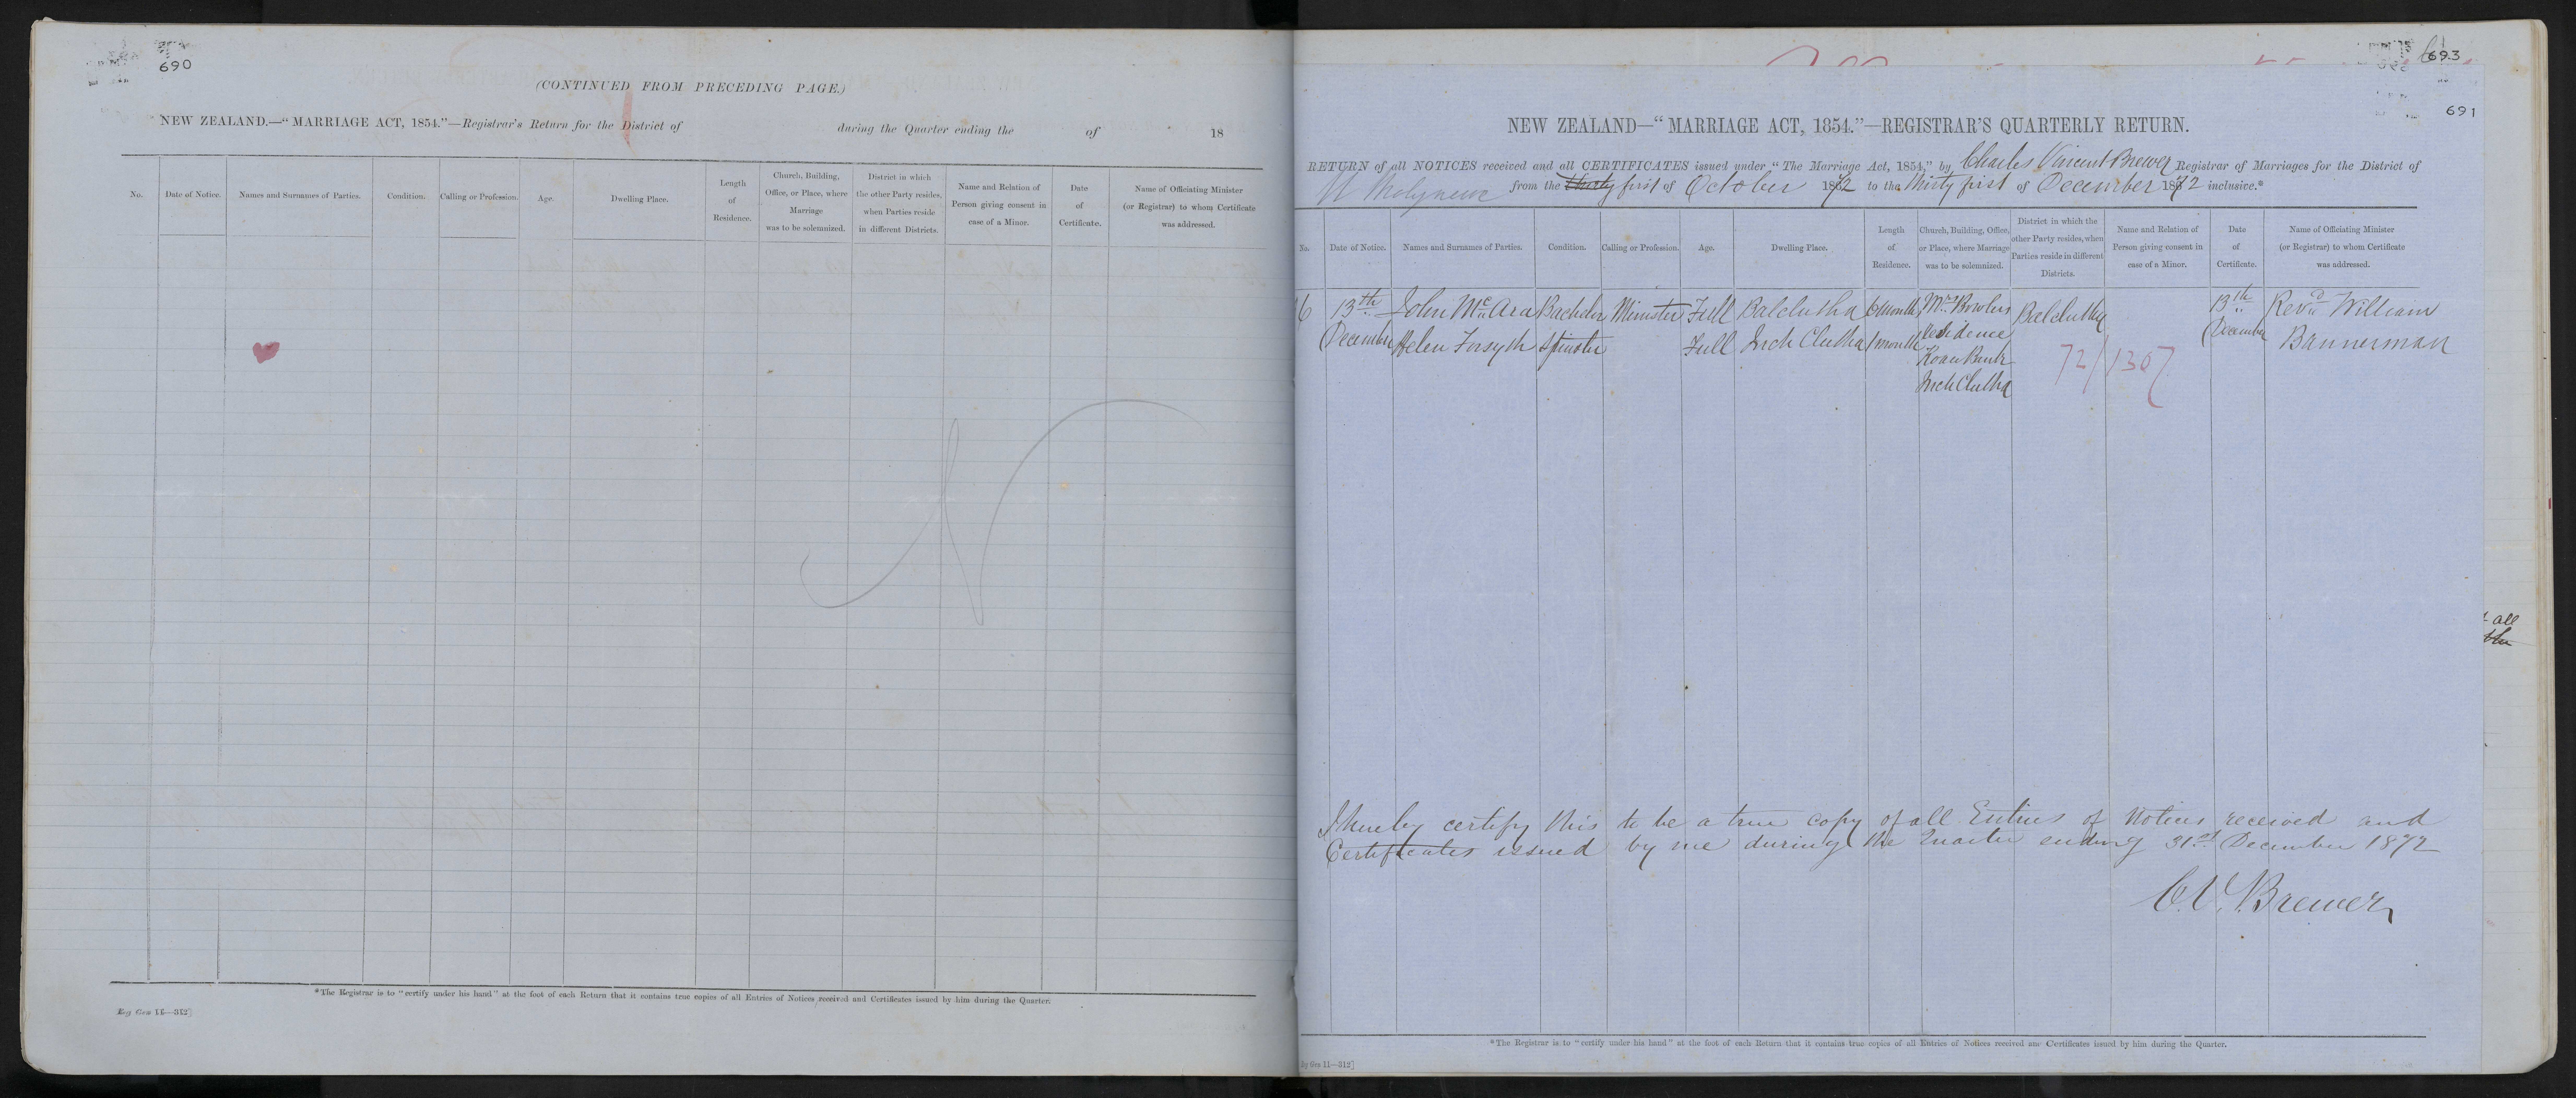 690
(CONTINUED FROM PRECEDING PAGE.)
NEW ZEALAND.—“MARRIAGE ACT, 1854.”—Registrar's Return for the District of during the Quarter ending the of 18
No.
Date of Notice.
Names and Surnames of Parties.
Condition.
Calling or Profession.
Age.
Dwelling Place.
Length
of
Residence.
Church, Building,
Office, or Place, where
Marriage
was to be solemnized.
District in which
the other Party resides,
when Parties reside
in different Districts.
Name and Relation of
Person giving consent in
case of a Minor.
Date
of
Certificate.
Name of Officiating Minister
(or Registrar) to whom Certificate
was addressed.
*The Registrar is to “certify under his hand” at the foot of each Return that it contains true copies of all Entries of Notices received and Certificates issued by him during the Quarter.
Reg Gen 11—312]
693
691
NEW ZEALAND—“MARRIAGE ACT, 1854.”—REGISTRAR'S QUARTERLY RETURN.
RETURN of all NOTICES received and all CERTIFICATES issued under “The Marriage Act, 1854,” by Charles Vincent Brewer Registrar of Marriages for the District of
Molyneux from the thirty first of October 1872 to the thirty first of December 1872 inclusive.*
No.
Date of Notice.
Names and Surnames of Parties.
Condition.
Calling or Profession.
Age.
Dwelling Place.
Length
of
Residence.
Church, Building, Office,
or Place, where Marriage
was to be solemnized.
District in which the
other Party resides, when
Parties reside in different
Districts.
Name and Relation of
Person giving consent in
case of a Minor.
Date
of
Certificate.
Name of Officiating Minister
(or Registrar) to whom Certificate
was addressed.
16 13th John McAra Bachelor Minister Full Balclutha 6 Month Mrs Bowlers Balclutha 13th Revd William
December Helen Forsyth Spinster Full Inch Clutha 1 month residence December Bannerman
Bank
Inch Clutha
72/1307
all
the
I hereby certify this to be a true copy of all Entries of Notices received and
Certificates issued by me during the Quarter ending 31st December 1872
C.V. Brewer
*The Registrar is to “certify under his hand” at the foot of each Return that it contains true copies of all Entries of Notices received and Certificates issued by him during the Quarter.
Reg Gen 11—312]